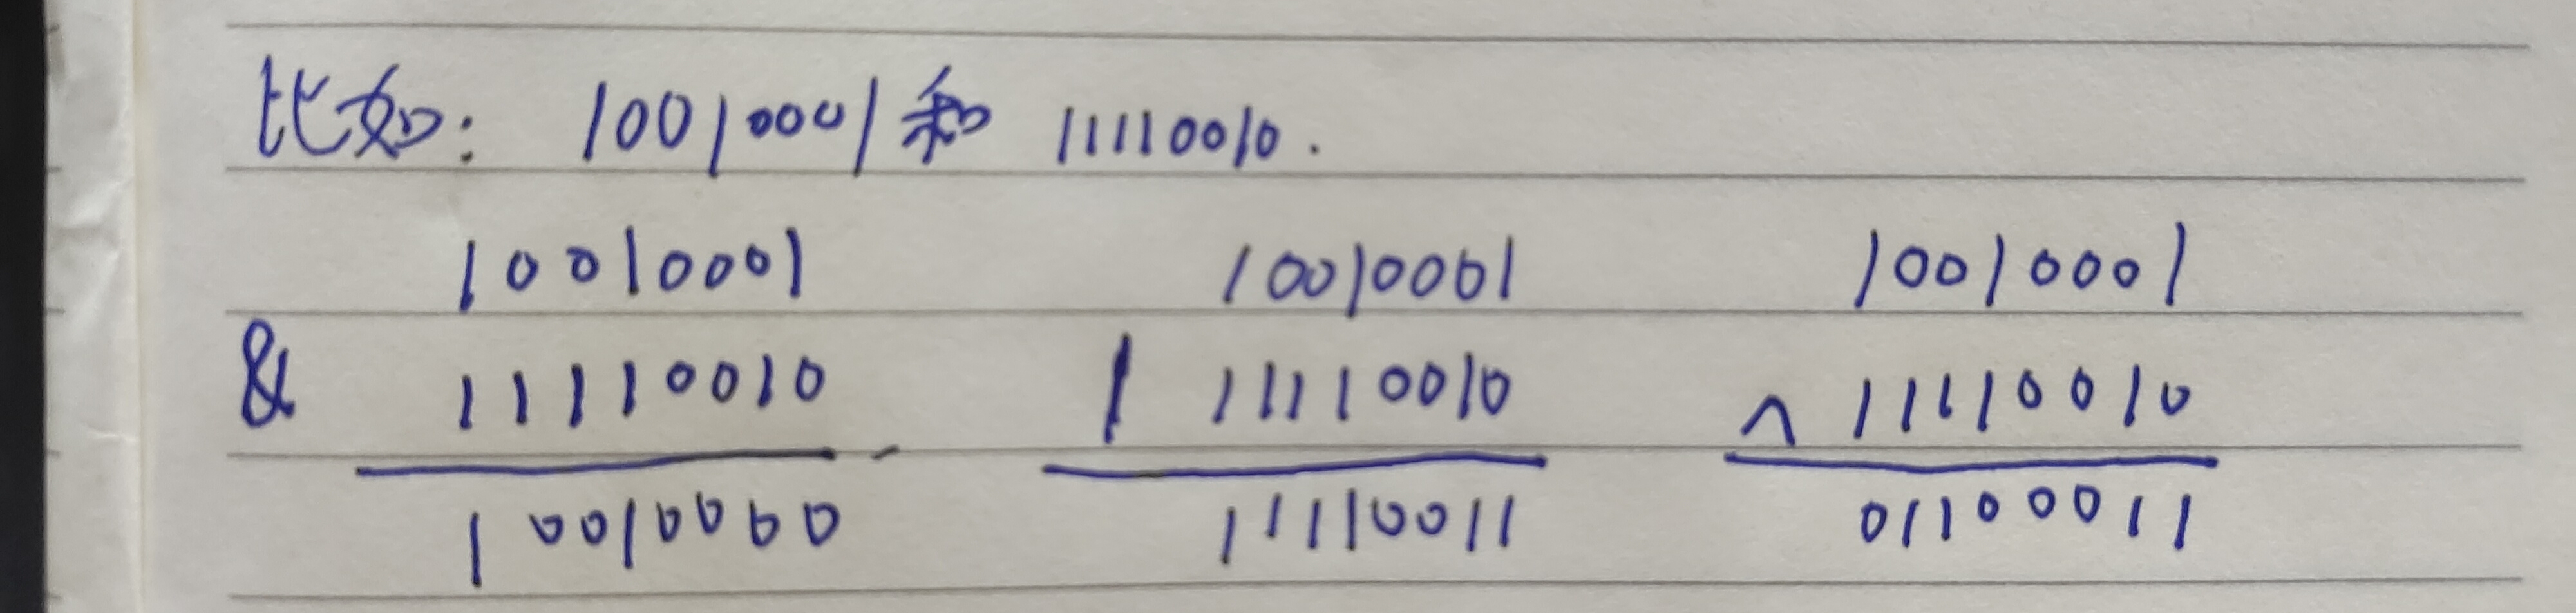 比如: 10010001和 11110010.
10010001 10010001 10010001
& 11110010 | 11110010 ^ 11110010
10010000 11110011 01100011